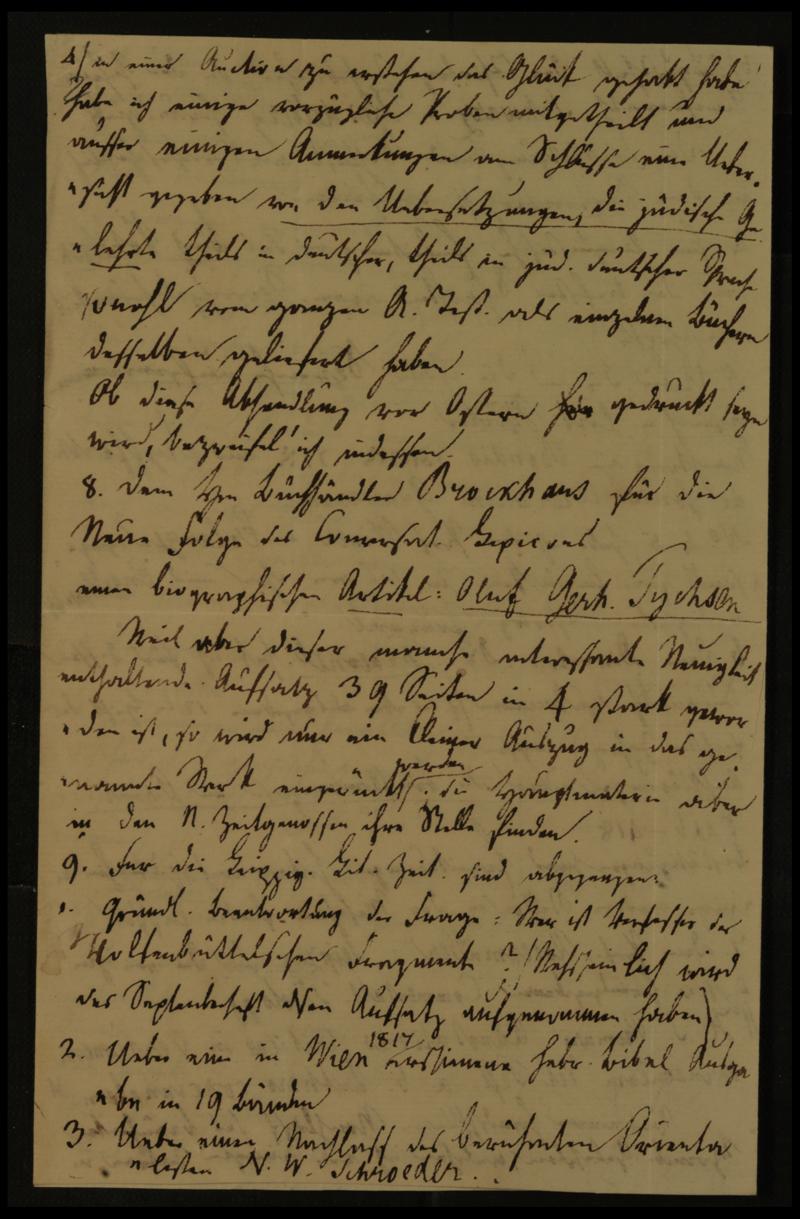 4) in einer Auction zu erstehen das Glück gehabt habe
habe ich einige vorzügliche Proben mitgetheilt und
außer einigen Anmerkungen am Schlusse eine Ueber-
"sicht gegeben von den Uebersetzungen, die jüdische Ge-
"lehrte theils in deutscher, theils in jüd. deutscher Sprache
sowohl vom ganzen A. Test. als einzelnen Büchern
desselben geliefert haben.
Ob diese Abhandlung vor Ostern gedruckt seyn
wird, bezweifel' ich indessen.
8. dem Hrn Buchhändler Brockhaus für die
Neue Folge des Conversat. Lexicons
einen biographischen Artikel: Oluf Gerh. Tychsen
Weil aber dieser manche interessante Neuigkeit
enthaltende Aufsatz 39 Seiten in 4 stark gewor
"den ist, so wird nur ein kleiner Auszug in das ge-
"nannte Werk eingerückt werden, die Hauptmaterie aber
in den N. Zeitgenossen ihre Stelle finden.
9. Für die Leipzig. Lit. Zeit. sind abgegangen:
1. Gründl. Beantwortung der Frage: Wer ist Verfasser der
Wolfenbüttelschen Fragmente? (Wahrscheinlich wird
das Septemberheft den Aufsatz aufgenommen haben)
2. Ueber eine in Wien 1817 erschienene hebr. Bibel Ausga
"be in 19 Bänden
3. Ueber einen Nachlass des berühmten Orienta
"listen N. W. Schroeder.